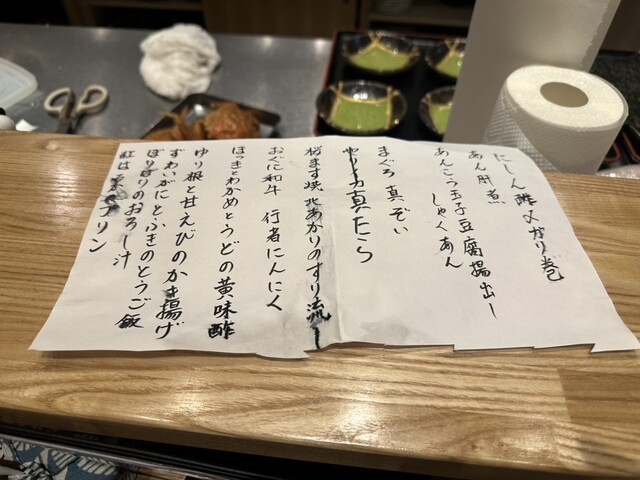 にしん酢〆がり巻
あん肝煮
あんこう玉子豆腐揚出し
しゃくあん
まぐろ 真ぞい
やりイカ真たら
桜ます焼 北あかりのすり流し
おぐに和牛 行者にんにく
ほっきとわかめとうどの黄味酢
ゆり根と甘えびのかき揚げ
ずわいがにとふきのとうご飯
ぼりぼりのおろし汁
紅は プリン